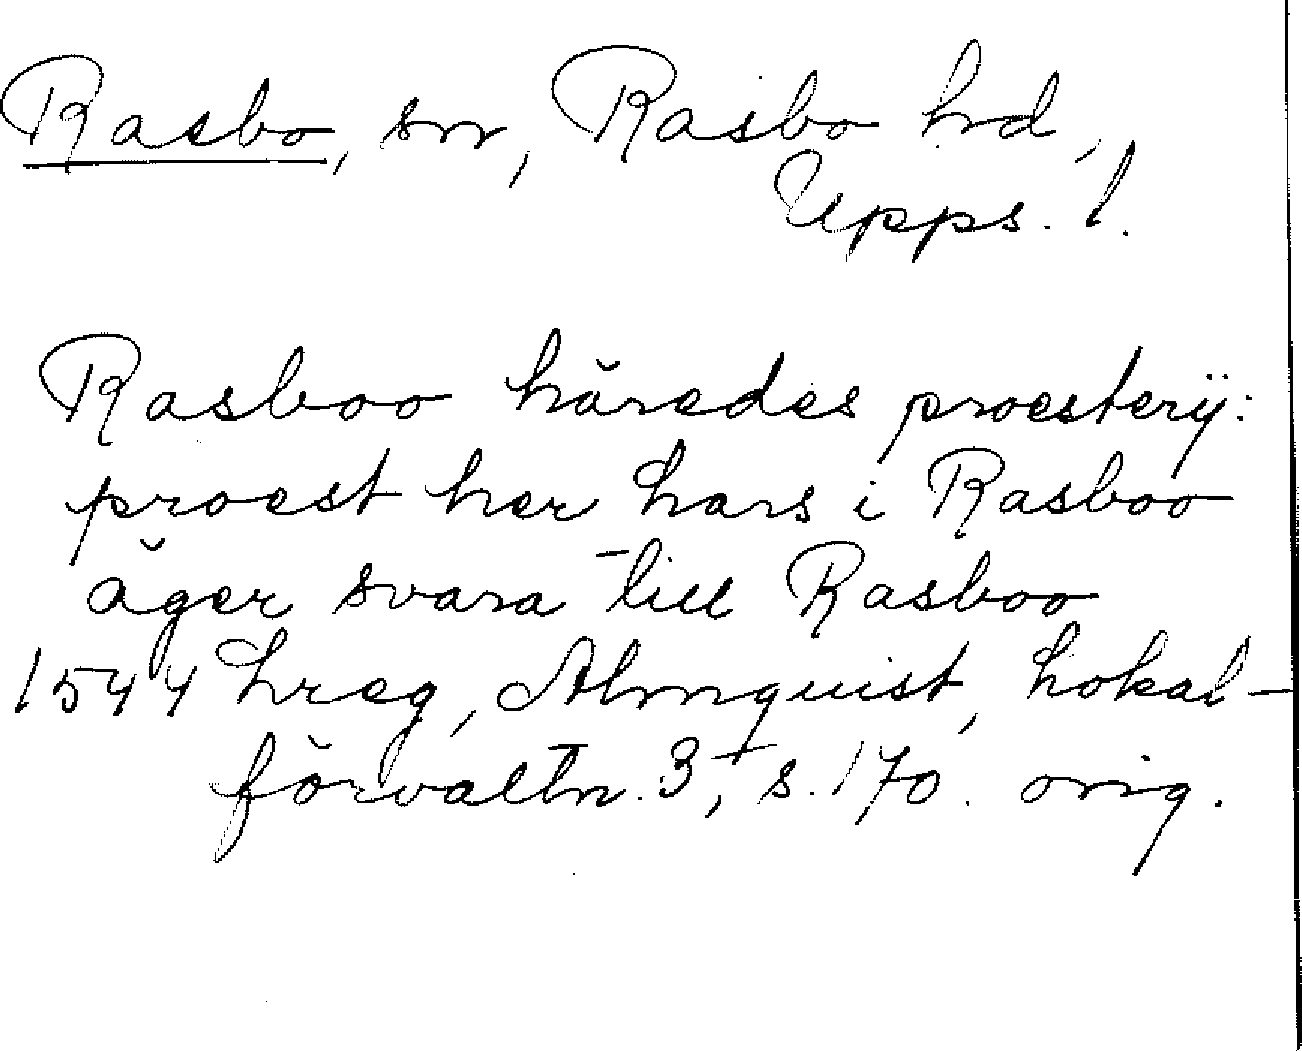 Rasbo, sn, Rasbo hd,
Upps. l.
Rasboo häredes proesterÿ:
proest her hans i Rasboo
äger svara till Rasboo
1544 Lreg, Almquist, Lokal-
förvaltn. 3, s. 170. orig.